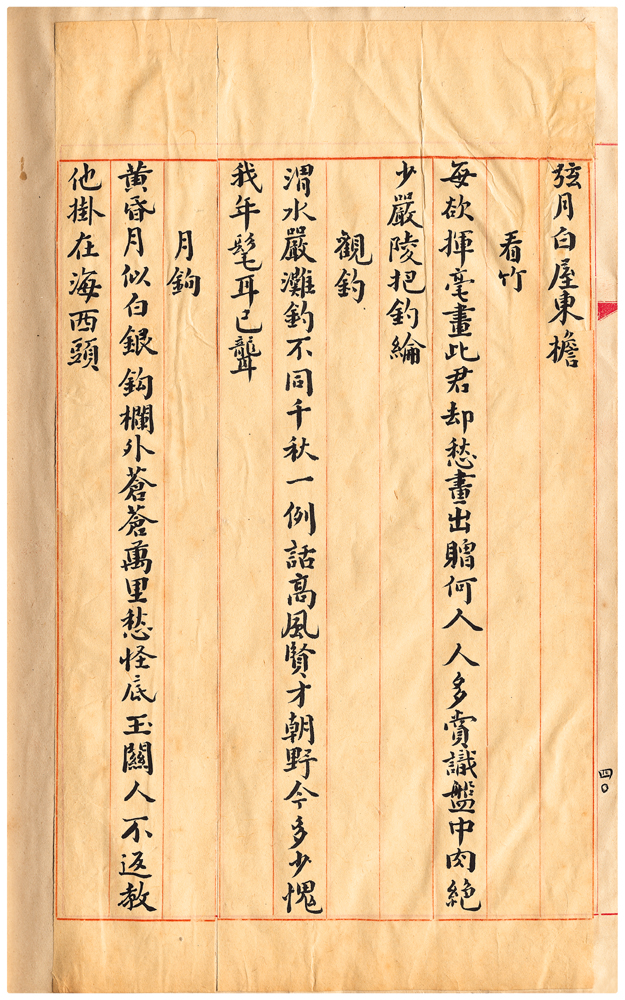 弦月白屋東檐
看竹
每欲揮毫畫此君却愁畫出贈何人人多賞識盤中肉絶
少嚴陵把釣綸
觀釣
渭水嚴灘釣不同千秋一例話高風賢才朝野今多少愧
我年髦耳已聾
月鉤
黄昏月似白銀鉤欄外蒼蒼萬里愁怪底玉關人不返教
他掛在海西頭
四〇